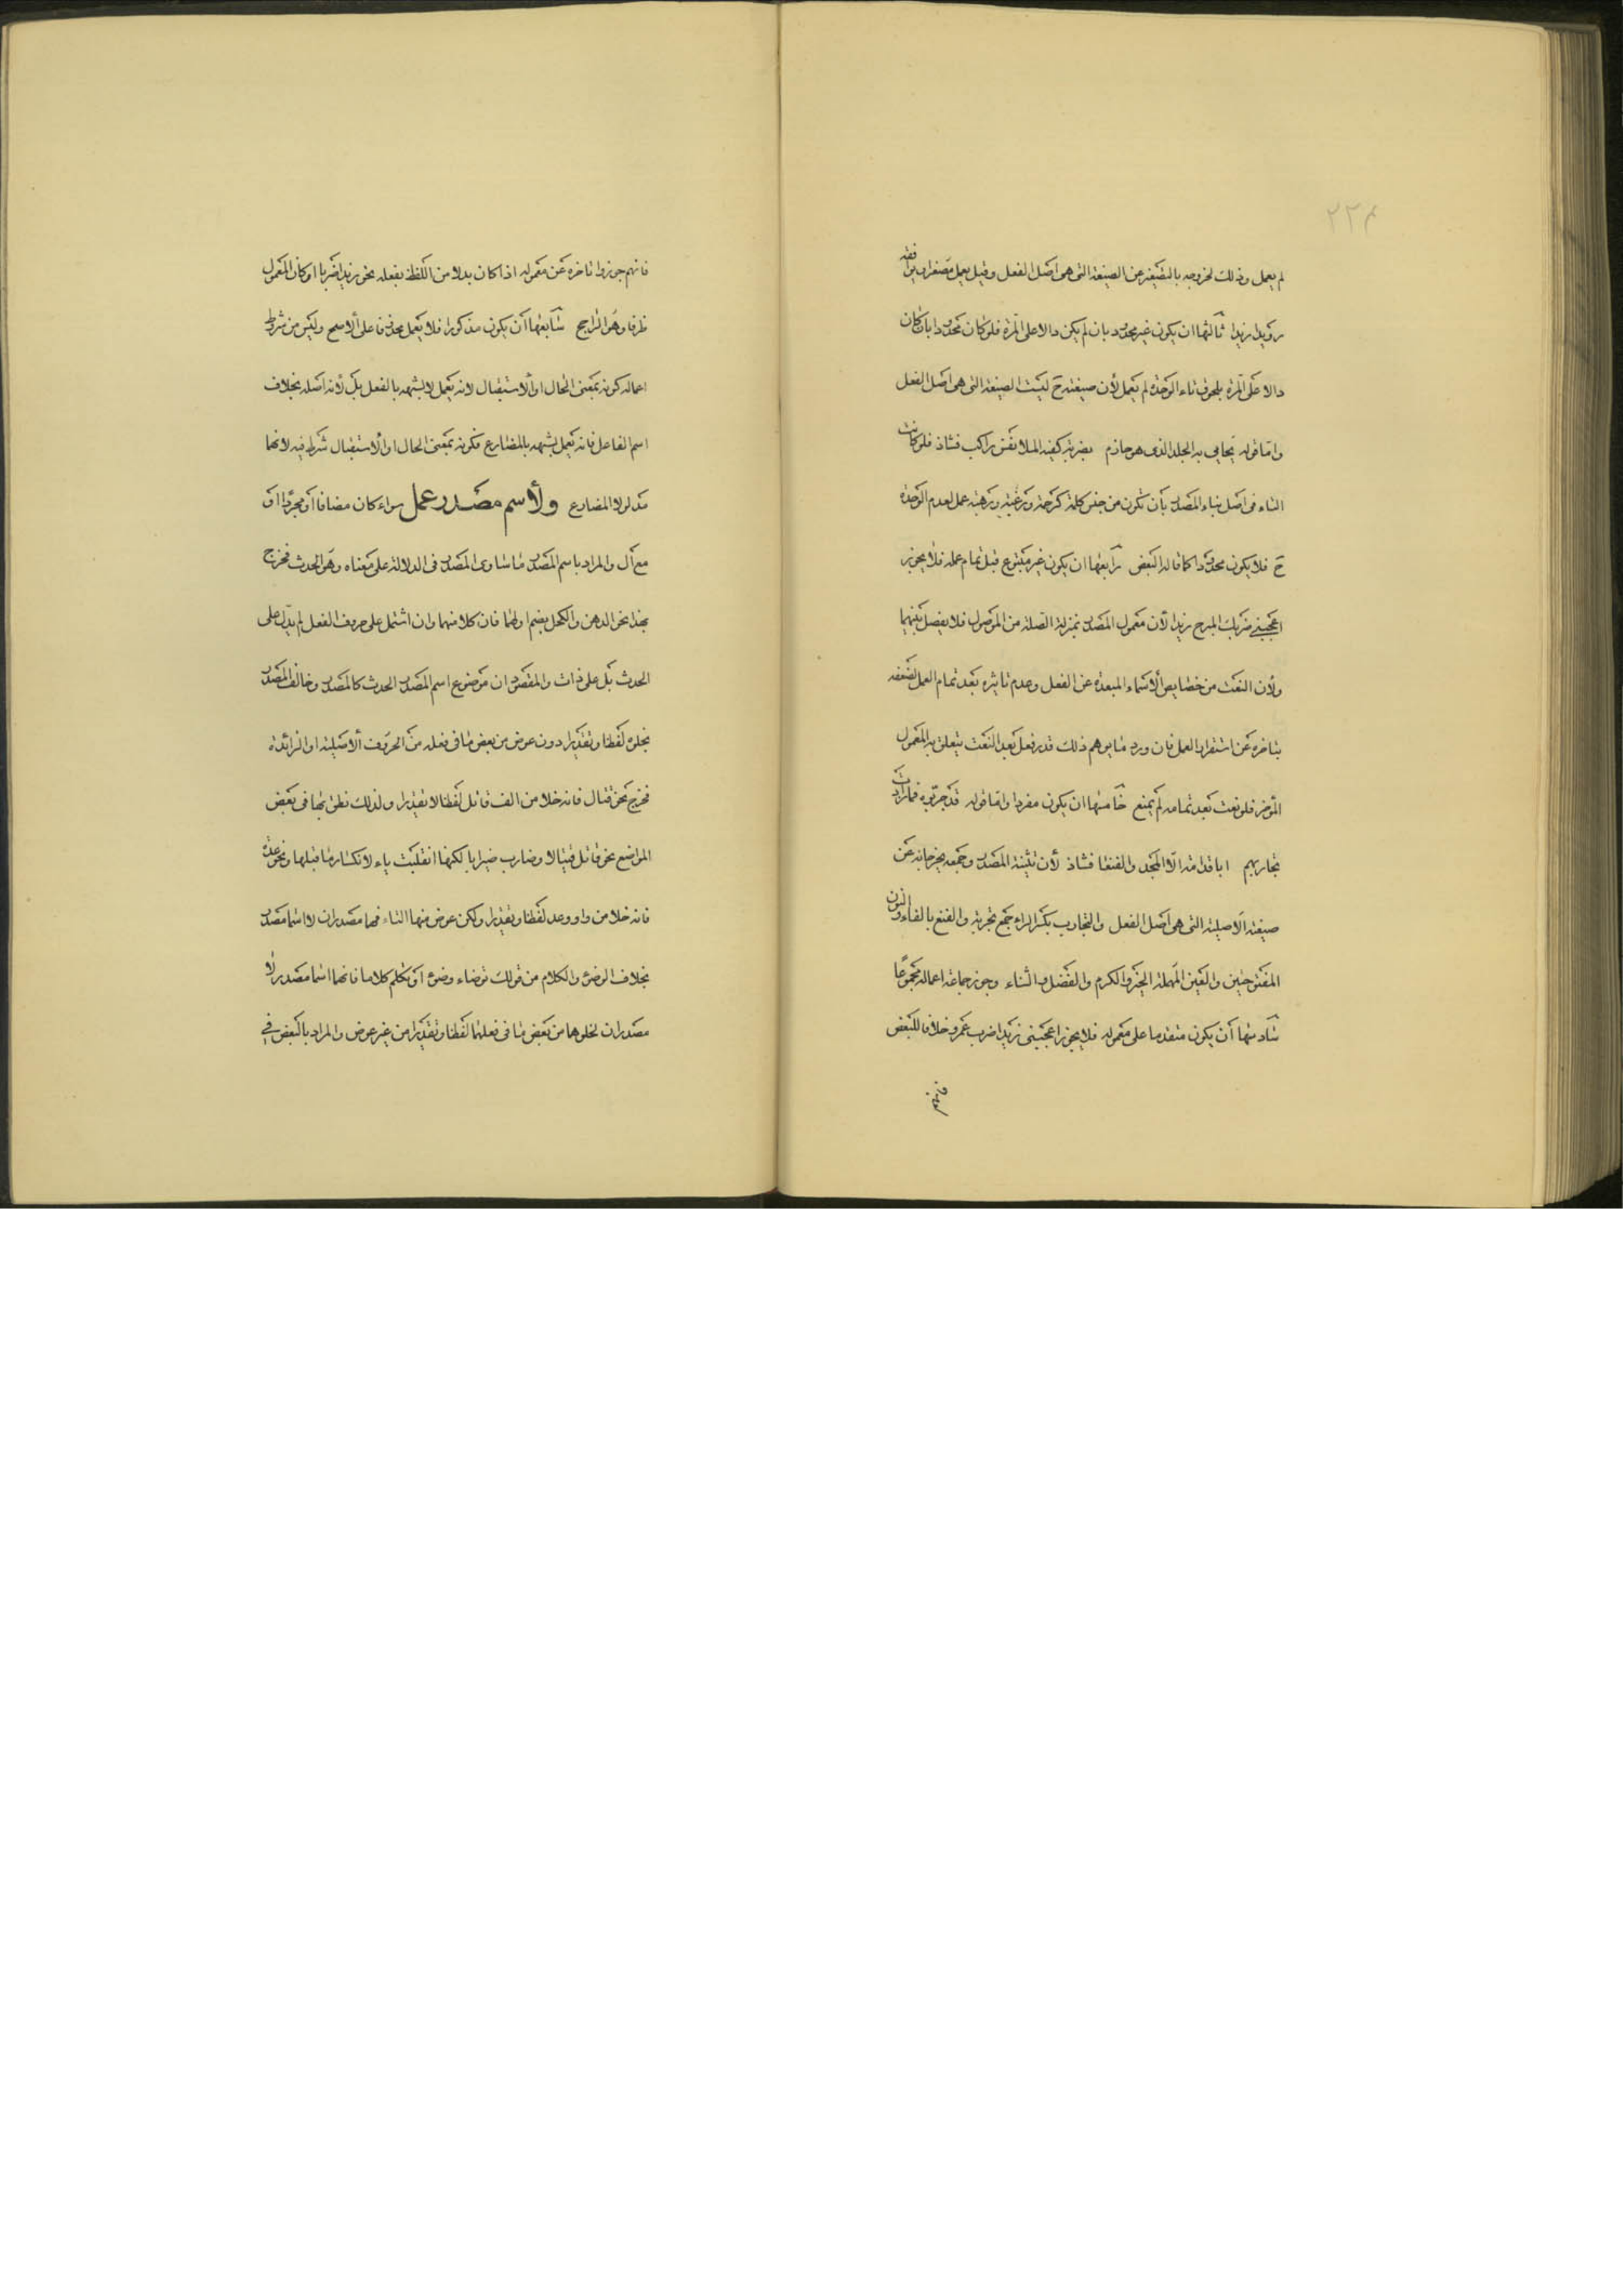 ٢٢٤
لم يعمل وذلك لخروجه بالتصغير عن الصيغة التى هى اصل الفعل وقيل يعمل مصغرا
رويدا زيدا ثالثها ان يكون غير محدود بان لم يكن دالا على المرة فلو كان محدودا بان كان
دالا على المرة بلحوق تاء الوحدة لم يعمل لأن صيغته ح ليست الصيغة التى هى اصل الفعل
واما قوله يحايى به الجلد الذى هو حازم بضربة كفيه الملا نفس راكب فشاذ فلو كانت
التاء فى اصل بناء المصدر بأن تكون من جنس كلمة كرحمة ورغبة ورهبة عمل لعدم الوحدة
ح فلا يكون محدودا كما قاله البعض رابعها ان يكون غير متبوع قبل تمام عمله فلا يجوز
اعجبنى ضربك المبرح زيدا لأن معمول المصدر بمنزلة الصلة من الموصول فلا يفصل بينهما
ولأن النعت من خصايص الأسماء المبعدة عن الفعل وعدم تاثيره بعد تمام العمل لضعفه
بتاخره عن استقرار العمل فان ورد ما يوهم ذلك قدر فعل بعد النعت يتعلق به المعمول
المؤخر فلو نعت بعد تمامه لم يمنع خامسها ان يكون مفردا واما قوله قد جربوه فما زادت
تجاربهم ابا قدامة الا المجد والفنعا فشاذ لأن تثنية المصدر وجمعه يخرجانه عن
صيغته الاصلية التى هى اصل الفعل والتجارب بكسر الراء جمع تجربة والفنع بالفاء والنون
المفتوحتين والعين المهملة الخير والكرم والفضل والثناء وجوز جماعة اعماله مجموعًا
سادسها أن يكون متقدما على معموله فلا يجوز اعجبنى زيدا ضرب عمرو خلافا للبعض
فانهم جوزوا تاخره عن معموله اذا كان بدلا من اللفظ بفعله نحو زيدا ضربا او كان المعمول
ظرفا وهو الراجح سابعها أن يكون مذكورا فلا يعمل محذوفا على الأصح وليس من شرط
اعماله كونه بمعنى الحال او الاستقبال لانه يعمل لا لشبهه بالفعل بل لأنه اصله بخلاف
اسم الفاعل فانه يعمل لشبهه بالمضارع فكونه بمعنى الحال او الاستقبال شرط فيه لانهما
مدلولا المضارع ولأسم مصدر عمل سواء كان مضافا أو مجردا او
مع أل والمراد باسم المصدر ما ساوى المصدر فى الدلالة على معناه وهو الحدث فخرج
بهذا نحو الدهن والكحل بضم اولهما فان كلا منهما وان اشتمل على حروف الفعل لم يدل على
الحدث بل على ذات والمقصود ان موضوع اسم المصدر الحدث كالمصدر وخالف المصدر
بخلوه لفظا وتقديرا دون عوض من بعض ما فى فعله من الحروف الأصلية او الزائدة
فخرج نحو قتال فانه خلا من الف قاتل لفظا لا تقديرا ولذلك نطق بها فى بعض
المواضع نحو قاتل قيتالا وضارب ضيرابا لكنها انقلبت ياء لانكسار ما قبلها ونحو عدة
فانه خلا من واو وعد لفظا وتقديرا ولكن عوض منها التاء فهما مصدران لا اسما مصدر
بخلاف الوضوء والكلام من قولك توضاء وضوءا وتكلم كلاما فانهما اسما مصدر لا
مصدران لخلوهما من بعض ما فى فعلهما لفظا وتقديرا من غير عوض والمراد بالبعض فى